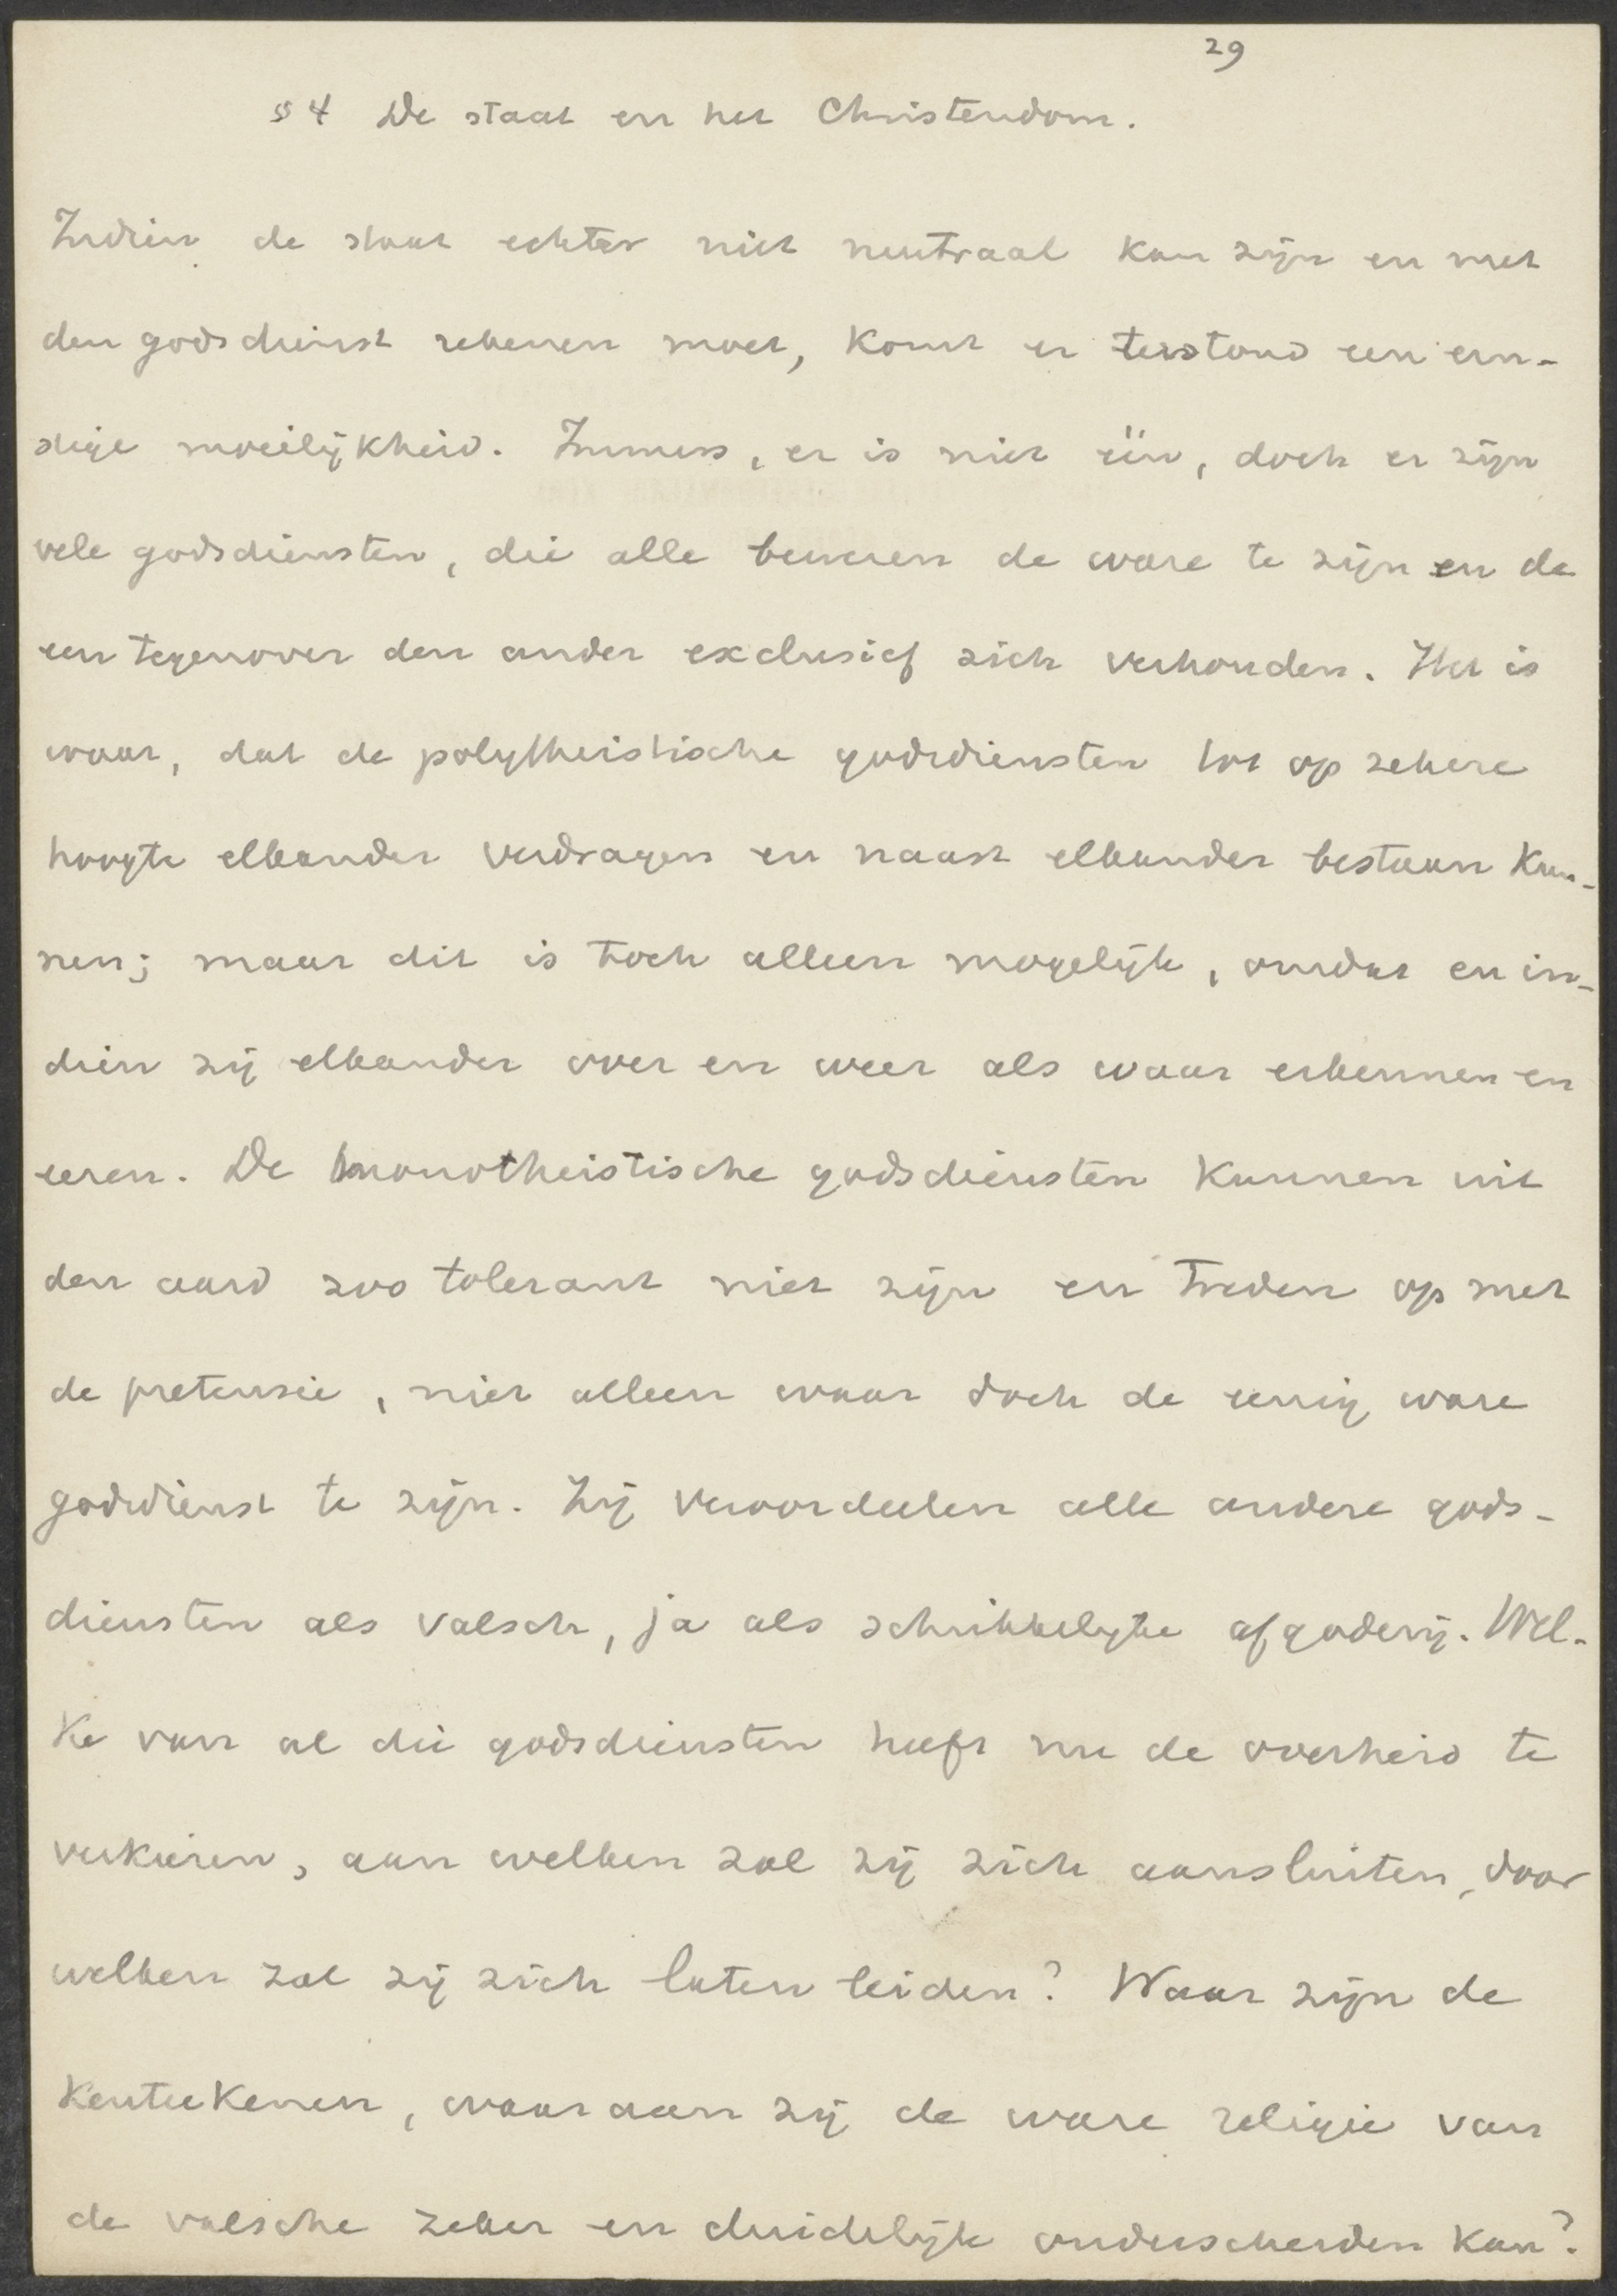 29
§ 4 De staat en het Christendom.
Indien de staat echter niet neutraal kan zijn en met
den godsdienst rekenen moet, komt er terstond een ern-
stige moeilijkheid. Immers, er is niet één, doch er zijn
vele godsdiensten, die alle beweren de ware te zijn en de
een tegenover den ander exclusief zich verhouden. Het is
waar, dat de polytheistische godsdiensten tot op zekere
hoogte elkander verdragen en naast elkander bestaan kun-
nen; maar dit is toch alleen mogelijk, omdat en in-
dien zij elkander over en weer als waar erkennen en
eeren. De monotheistische godsdiensten kunnen uit
den aard zoo tolerant niet zijn en treden op met
de pretensie, niet alleen waar doch de eenig ware
godsdienst te zijn. Zij veroordeelen alle andere gods-
diensten als valsch, ja als schrikkelijke afgoderij. Wel-
ke van al die godsdiensten heeft nu de overheid te
verkiezen, aan welken zal zij zich aansluiten, door
welken zal zij zich laten leiden? Waar zijn de
kenteekenen, waaraan zij de ware religie van
de valsche zeker en duidelijk onderscheiden kan?